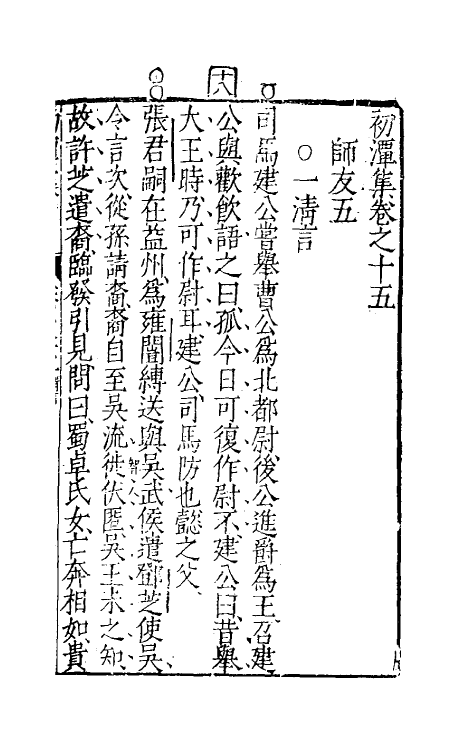 初潭集卷之十五
師友五
○一清言
司馬建公嘗舉曹公爲北都尉後公進爵爲王召建
公與歡飲語之曰孤今日可復作尉不建公曰昔舉
大王時乃可作尉耳建公司馬防也懿之父
張君嗣在益州爲雍闓縛送與吳武侯遣鄧芝使吳
令言次從孫請裔裔自至吳流徙伏匿吳王未之知
智人
故許芝遣裔臨發引見問曰蜀卓氏女亡奔相如貴
十八